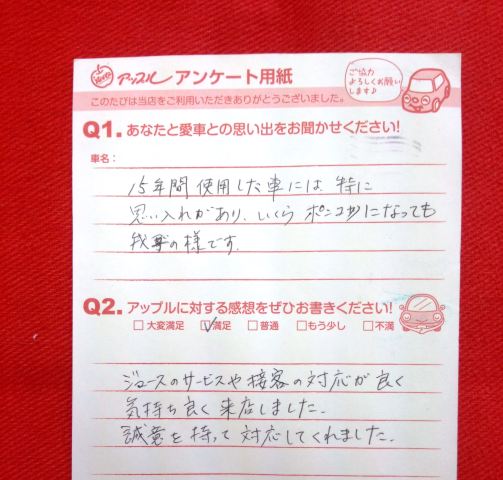 アップル アンケート用紙
ご協力
よろしくお願い
します♪
このたびは当店をご利用いただきありがとうございました。
Q1. あなたと愛車との思い出をお聞かせください!
車名:
15年間使用した車には 特に
思い入れがあり、いくら ポンコツになっても
我が の様です。
Q2. アップルに対する感想をぜひお書きください!
大変満足 満足 普通 もう少し 不満
ジュースのサービスや接客の対応が良く
気持ち良く来店しました。
誠意を持って対応してくれました。